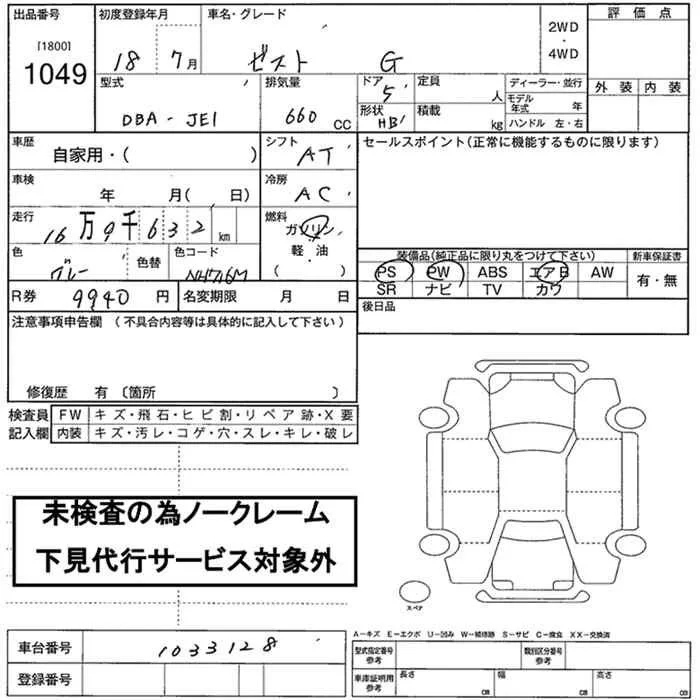 出品番号 初度登録年月 車名・グレード 2WD・4WD 評価点
[1800] 1049 18 7月 ゼスト G
型式 排気量 ドア 5 定員 人 ディーラー・並行 外装 内装
DBA - JE1 660 CC 形状 HB 積載 kg モデル年式 年
ハンドル 左・右
車歴 自家用・( ) シフト AT セールスポイント(正常に機能するものに限ります)
車検 年 月( 日) 冷房 AC
走行 16万9千632 km 燃料 ガソリン・軽油・( )
色 グレー 色替 色コード NH716M
装備品(純正品に限り丸をつけて下さい) 新車保証書
PS PW ABS エアB AW 有・無
SR ナビ TV カワ
R券 9940 円 名変期限 月 日 後日品
注意事項申告欄 (不具合内容等は具体的に記入して下さい)
修復歴 有 〔箇所 〕
検査員記入欄 FW キズ・飛石・ヒビ割・リペア跡・X要
内装 キズ・汚レ・コゲ・穴・スレ・キレ・破レ
未検査の為ノークレーム
下見代行サービス対象外
スペア
A-キズ E-エクボ U-凹み W-補修跡 S-サビ C-腐食 XX-交換済
車台番号 1033128 型式指定番号 参考 類別区分番号 参考
登録番号 車庫証明用 参考 長さ cm 幅 cm 高さ cm